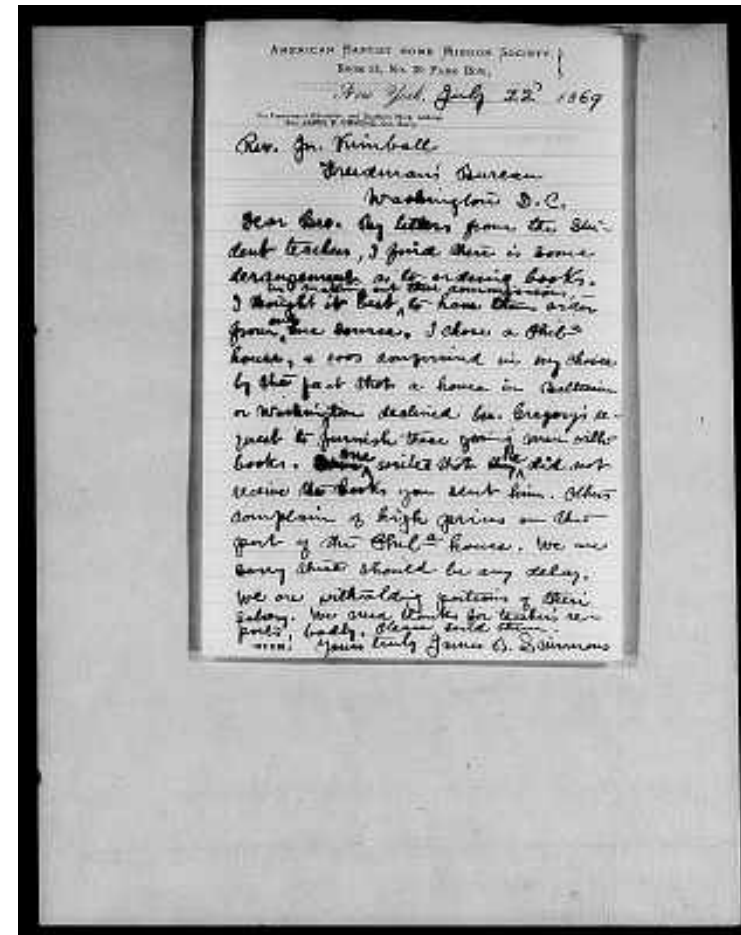 AMERICAN BAPTIST HOME MISSION SOCIETY,
ROOM 21, No. 39 PARK ROW,
New York, July 22d 1869
Rev. Jn. Kimball
Freedman's Bureau
Washington D.C.
Dear Bro. By letters from the Stu-
dent teachers, I find there is some
derangement as to ordering books.
in making out their commissions
I thought it best, to have them order
from only one source. I chose a Phila
house, & was confirmed in my choice
by the fact that a house in Baltimore
or Washington declined Mr. Gregory's re-
quest to furnish these young men with
books. One writes that he did not
receive the books you sent him. Others
complain of high prices on the
part of the Phila house. We are
sorry there should be any delay.
We are withholding portions of their
salary. We need blanks for teacher's re-
ports, badly. Please send them
Yours truly James B. Simmons